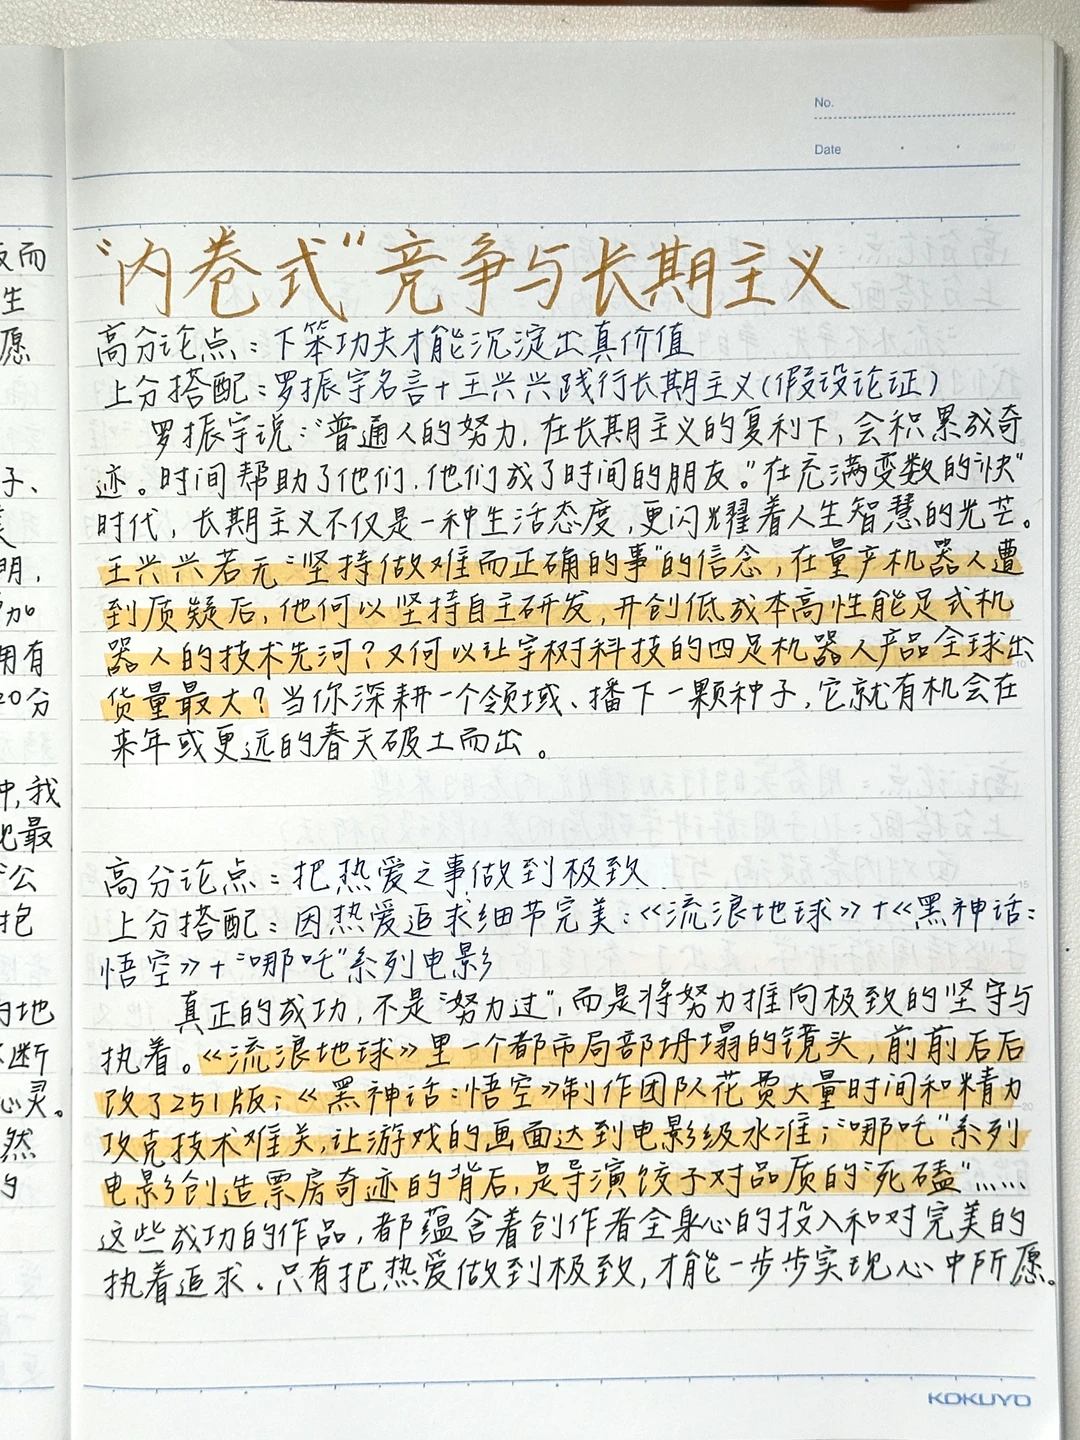 No.
Date
“内卷式”竞争与长期主义
高分论点：下笨功夫才能沉淀出真价值
上分搭配：罗振宇名言+王兴兴践行长期主义(假设论证)
罗振宇说：“普通人的努力，在长期主义的复利下，会积累成奇
迹。时间帮助了他们，他们成了时间的朋友。”在充满变数的“快”
时代，长期主义不仅是一种生活态度，更闪耀着人生智慧的光芒。
王兴兴若无“坚持做难而正确的事”的信念，在量产机器人遭
到质疑后，他何以坚持自主研发，开创低成本高性能足式机
器人的技术先河？又何以让宇树科技的四足机器人产品全球出
货量最大？当你深耕一个领域、播下一颗种子，它就有机会在
来年或更远的春天破土而出。
高分论点：把热爱之事做到极致
上分搭配：因热爱追求细节完美：《流浪地球》+《黑神话：
悟空》+“哪吒”系列电影
真正的成功，不是“努力过”，而是将努力推向极致的坚守与
执着。《流浪地球》里一个都市局部坍塌的镜头，前前后后
改了251版；《黑神话：悟空》制作团队花费大量时间和精力
攻克技术难关，让游戏的画面达到电影级水准；“哪吒”系列
电影创造票房奇迹的背后，是导演饺子对品质的“死磕”……
这些成功的作品，都蕴含着创作者全身心的投入和对完美的
执着追求。只有把热爱做到极致，才能一步步实现心中所愿。
KOKUYO
版而
生
愿
子、
明，
加
用有
20分
冲，我
最
公
抱
的地
断
心灵。
然
的